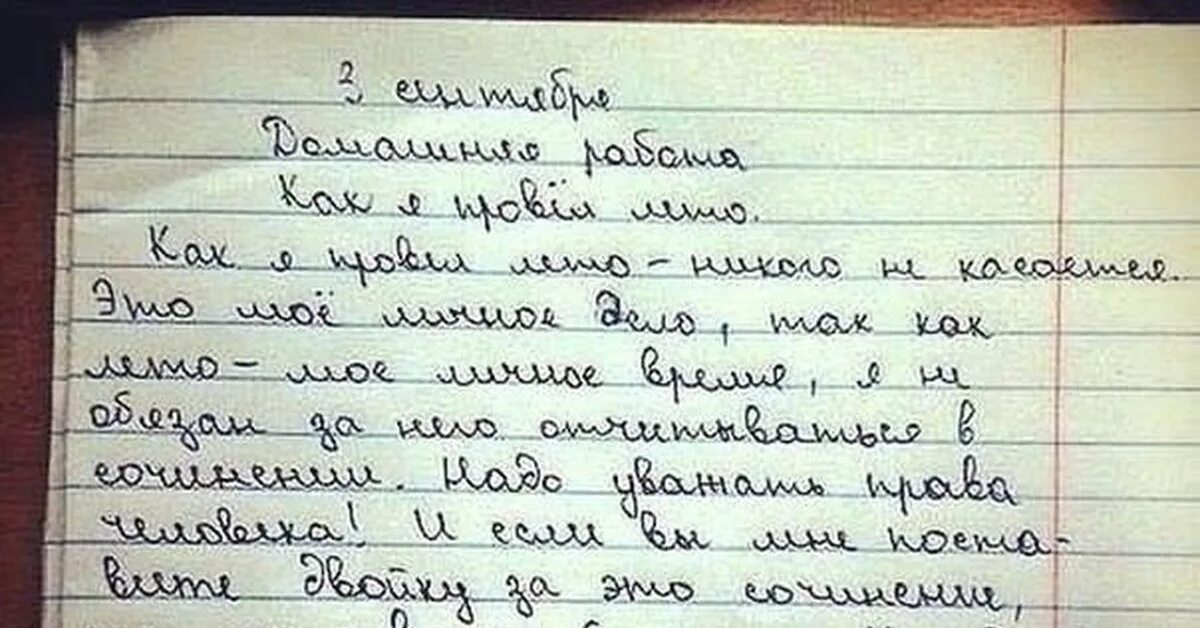 3 сентября
Домашняя работа
Как я провёл лето.
Как я провёл лето - никого не касается.
Это моё личное дело, так как
лето - мое личное время, я не
обязан за него отчитываться в
сочинении. Надо уважать права
человека! И если вы мне поста-
вите двойку за это сочинение,